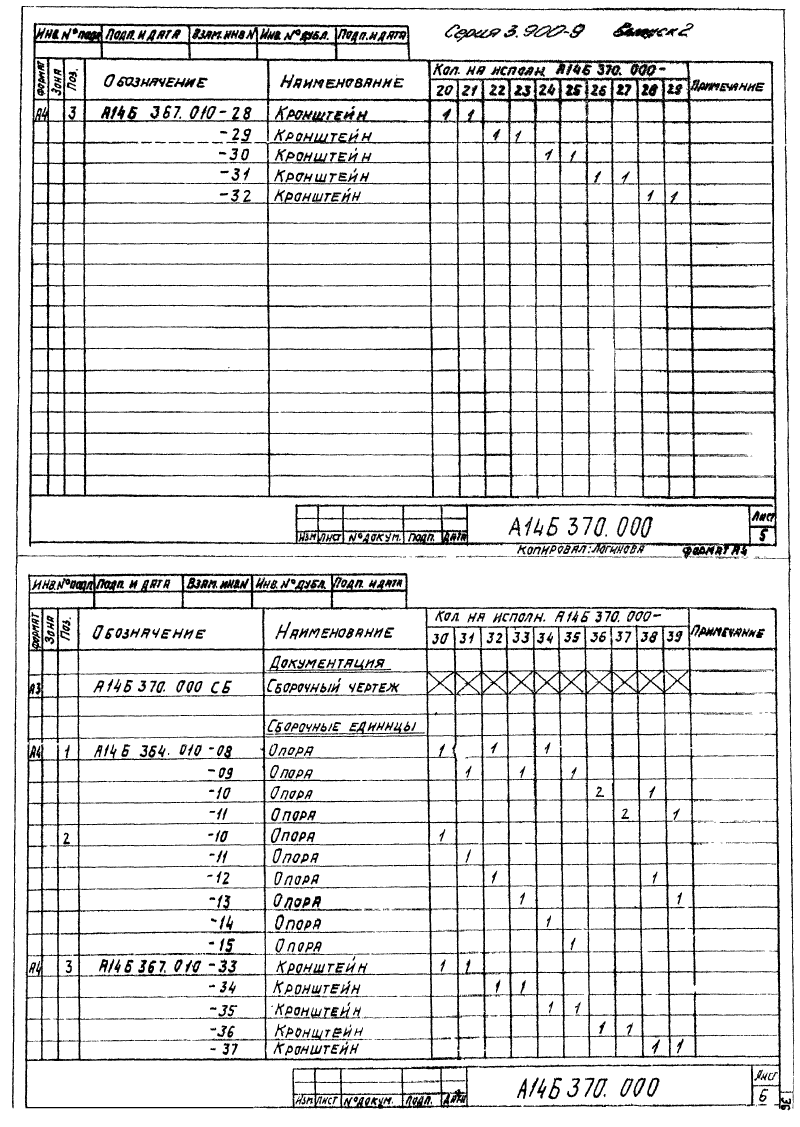 Серия 3.900-9 Выпуск 2
Инв. № подл. Подп. и дата Взам. инв. № Инв. № дубл. Подп. и дата
Формат Зона Поз. Обозначение Наименование Кол. на исполн. А14Б 370. 000- Примечание
20 21 22 23 24 25 26 27 28 29
А4 3 А14Б 367. 010-28 Кронштейн 1 1
-29 Кронштейн 1 1
-30 Кронштейн 1 1
-31 Кронштейн 1 1
-32 Кронштейн 1 1
Изм Лист № докум. Подп. Дата А14Б 370. 000 Лист 5
Копировал: Логинова Формат А4
Инв. № подл. Подп. и дата Взам. инв. № Инв. № дубл. Подп. и дата
Формат Зона Поз. Обозначение Наименование Кол. на исполн. А14Б 370. 000- Примечание
30 31 32 33 34 35 36 37 38 39
Документация
А3 А14Б 370. 000 СБ Сборочный чертеж
Сборочные единицы
А4 1 А14Б 364. 010-08 Опора 1 1 1
-09 Опора 1 1 1
-10 Опора 2 1
-11 Опора 2 1
2 -10 Опора 1
-11 Опора 1
-12 Опора 1 1
-13 Опора 1 1
-14 Опора 1
-15 Опора 1
А4 3 А14Б 367. 010-33 Кронштейн 1 1
-34 Кронштейн 1 1
-35 Кронштейн 1 1
-36 Кронштейн 1 1
-37 Кронштейн 1 1
Изм Лист № докум. Подп. Дата А14Б 370. 000 Лист 6
36